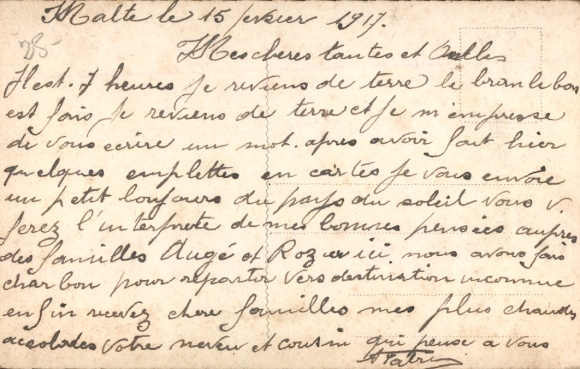 Malte le 15 fevrier 1917.
25
Mes cheres tantes et
Il est 7 heures je reviens de terre le branlebon
est fais je reviens de terre et je m'empresse
de vous ecrire un mot. apres avoir fait hier
quelques emplettes en cartes je vous envoie
un petit bonjours du pays du soleil vous
ferez l'interprete de mes bonnes pensées aupres
des familles Augé et Rozier ici, nous avons fais
charbon pour repartir vers destination inconnue
enfin recevez chere familles mes plus chaudes
accolades votre neveu et cousin qui pense a vous